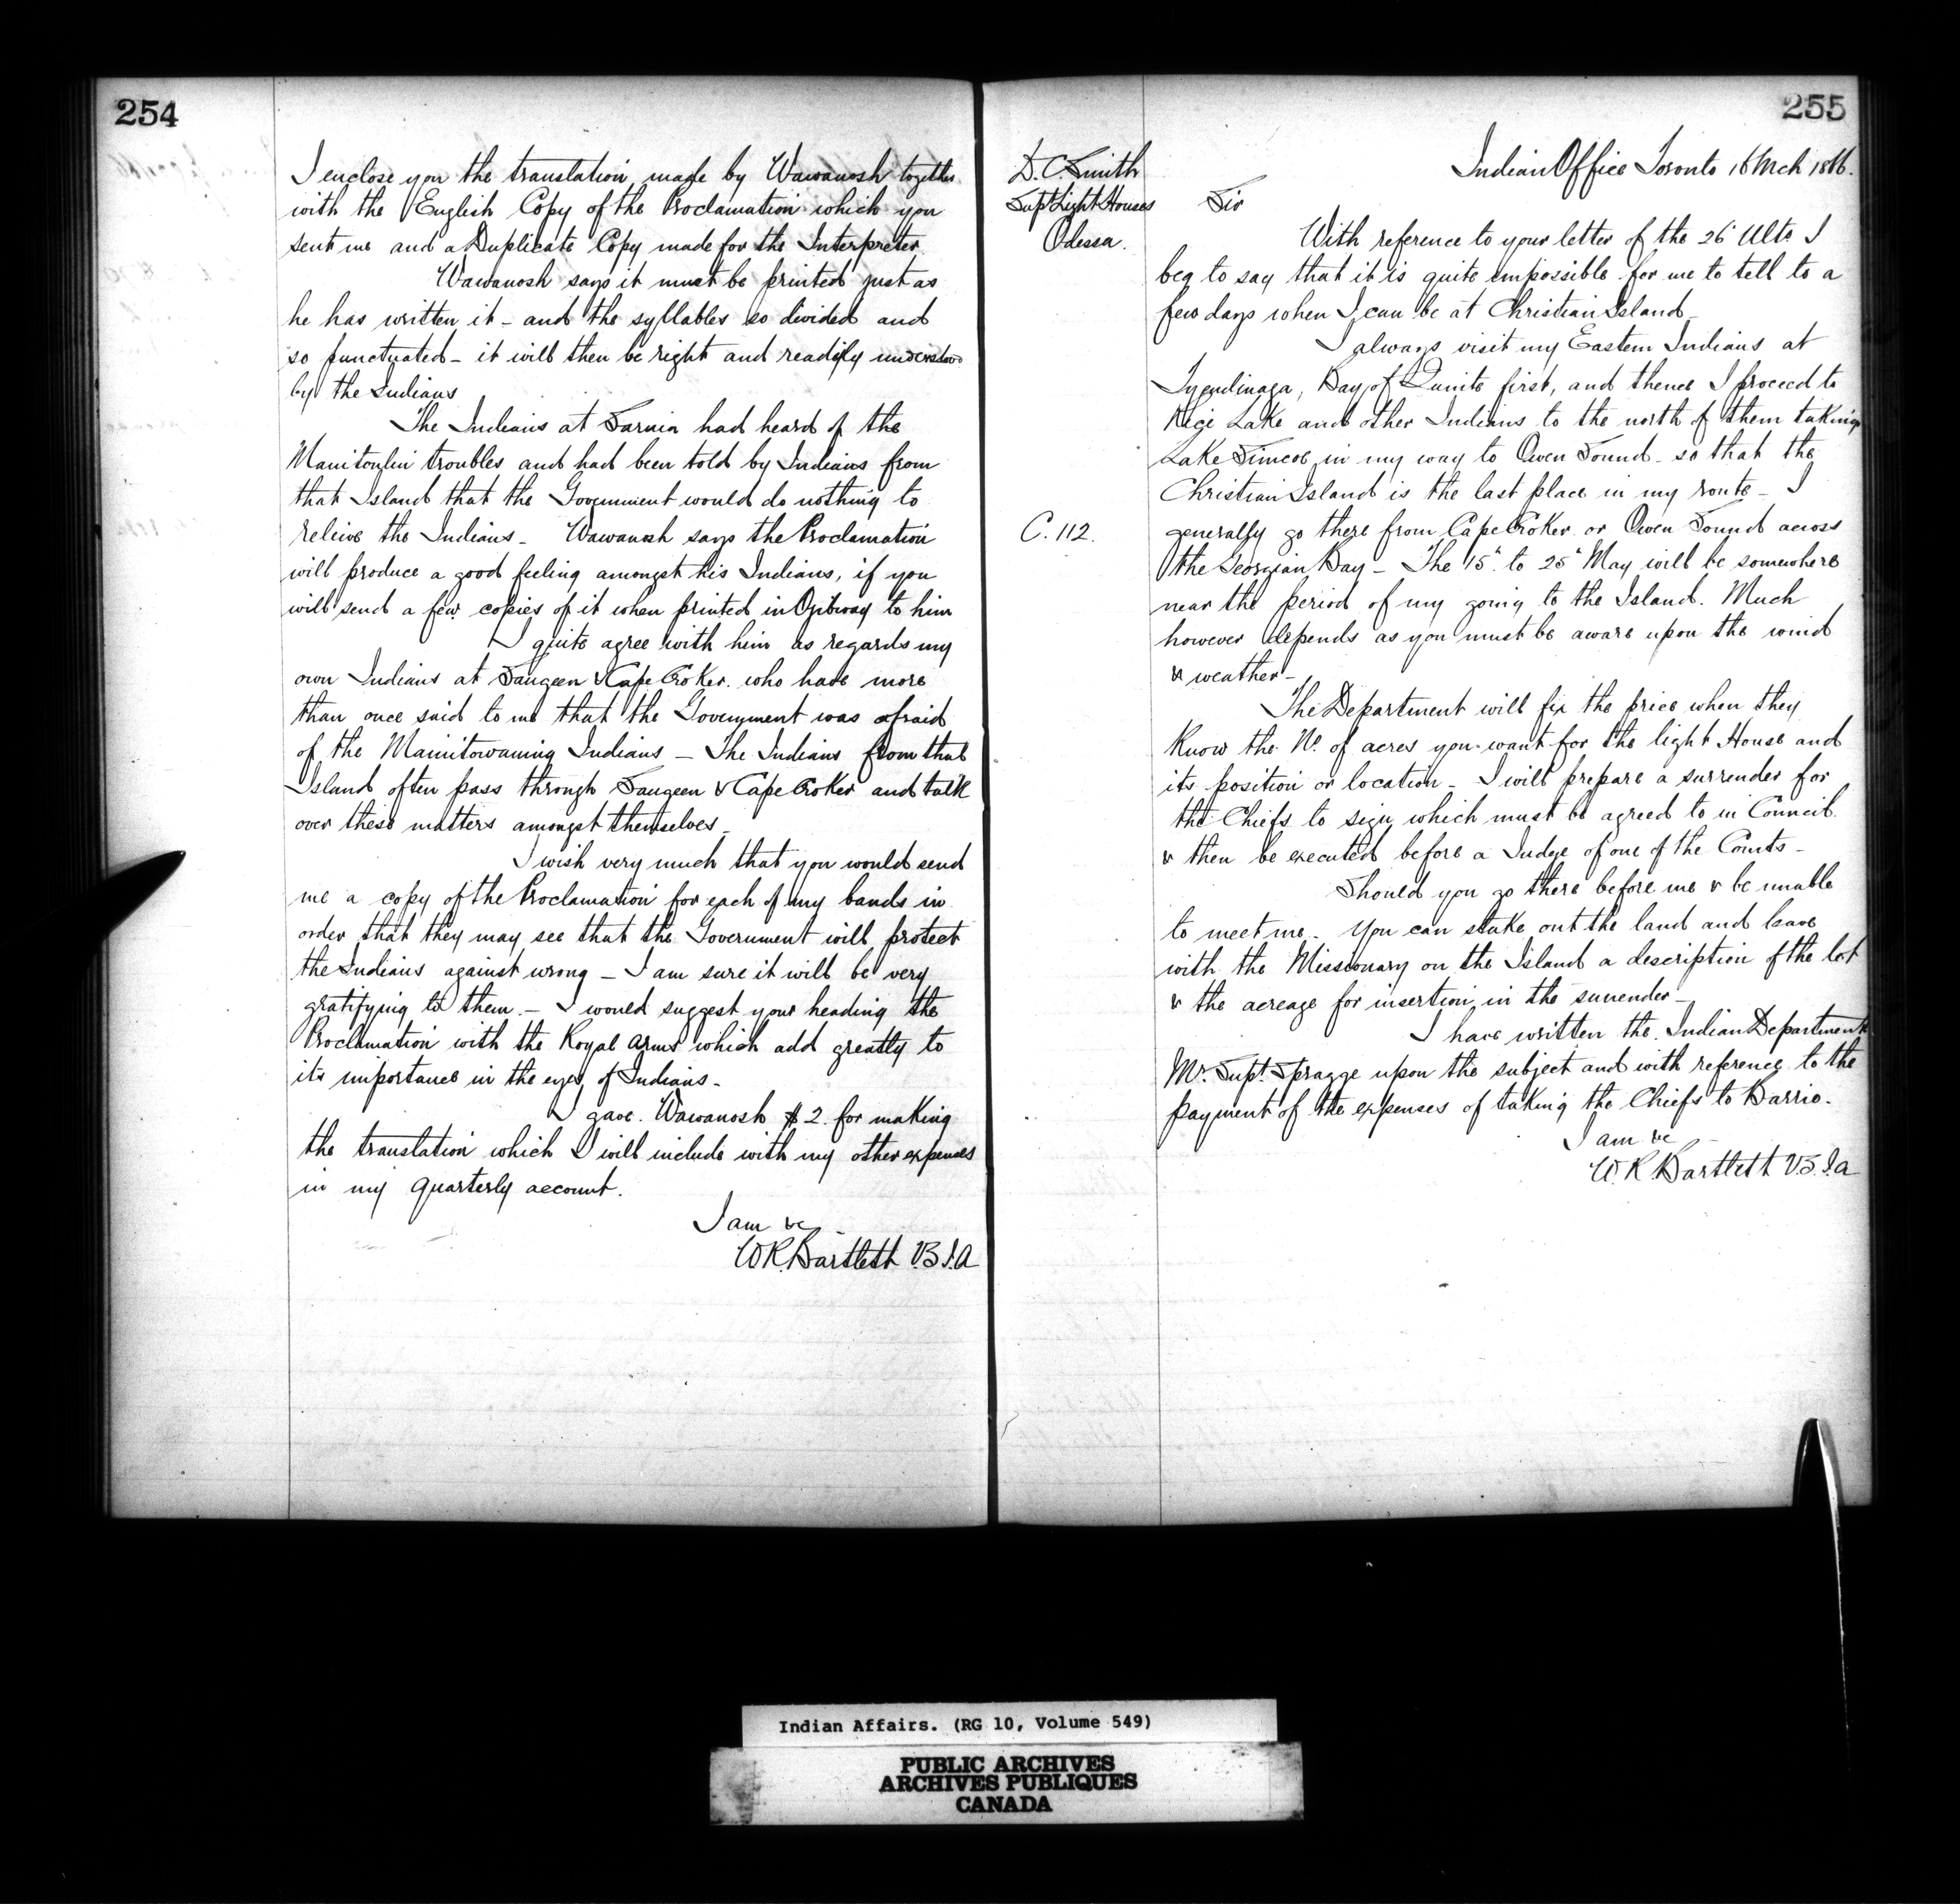 254
I enclose you the translation made by Wawanosh together
with the English Copy of the Proclamation which you
sent me and a Duplicate Copy made for the Interpreter.
Wawanosh says it must be printed just as
he has written it - and the syllables so divided and
so punctuated - it will then be right and readily understood
by the Indians
The Indians at Sarnia had heard of the
Manitoulin troubles and had been told by Indians from
that Island that the Government would do nothing to
releive the Indians - Wawanosh says the Proclamation
will produce a good feeling amongst his Indians, if you
will send a few copies of it when printed in Ojibway to him
I quite agree with him as regards my
own Indians at Saugeen & Cape Croker. who have more
than once said to me that the Government was afraid
of the Manitowaning Indians - The Indians from that
Island often pass through Saugeen & Cape Croker and talk
over these matters amongst themselves -
I wish very much that you would send
me a copy of the Proclamation for each of my bands in
order that they may see that the Government will protect
the Indians against wrong - I am sure it will be very
gratifying to them. - I would suggest your heading the
Proclamation with the Royal Arms which add greatly to
its importance in the eyes of Indians -
I gave Wawanosh $2. for making
the translation which I will include with my other expenses
in my quarterly account.
I am &c -
W R. Bartlett V.S.I.A
255
D. C. Smith
Supt Light Houses
Odessa.
Indian Office Toronto 16 Mch 1866.
Sir
With reference to your letter of the 26 Ulto. I
beg to say that it is quite impossible for me to tell to a
few days when I can be at Christian Island -
I always visit my Eastern Indians at
Tyendinaga, Bay of Quinte first, and thence I proceed to
Rice Lake and other Indians to the north of them taking
Lake Simcoe in my way to Owen Sound - so that the
Christian Island is the last place in my route - I
C. 112.
generally go there from Cape Croker or Owen Sound across
the Georgian Bay - The 15th to 25th May will be somewhere
near the period of my going to the Island. Much
however depends as you must be aware upon the wind
& weather -
The Department will fix the price when they
know the No. of acres you want for the light House and
its position or location - I will prepare a surrender for
the Chiefs to sign which must be agreed to in Council.
& then be executed before a Judge of one of the Courts -
Should you go there before me & be unable
to meet me - You can stake out the land and leave
with the Missionary on the Island a description of the lot
& the acreage for insertion in the surrender -
I have written the Indian Department
Mr. Supt. Spragge upon the subject and with reference to the
payment of the expenses of taking the Chiefs to Barrie.
I am &c -
W. R. Bartlett V.S.I.A
Indian Affairs. (RG 10, Volume 549)
PUBLIC ARCHIVES
ARCHIVES PUBLIQUES
CANADA